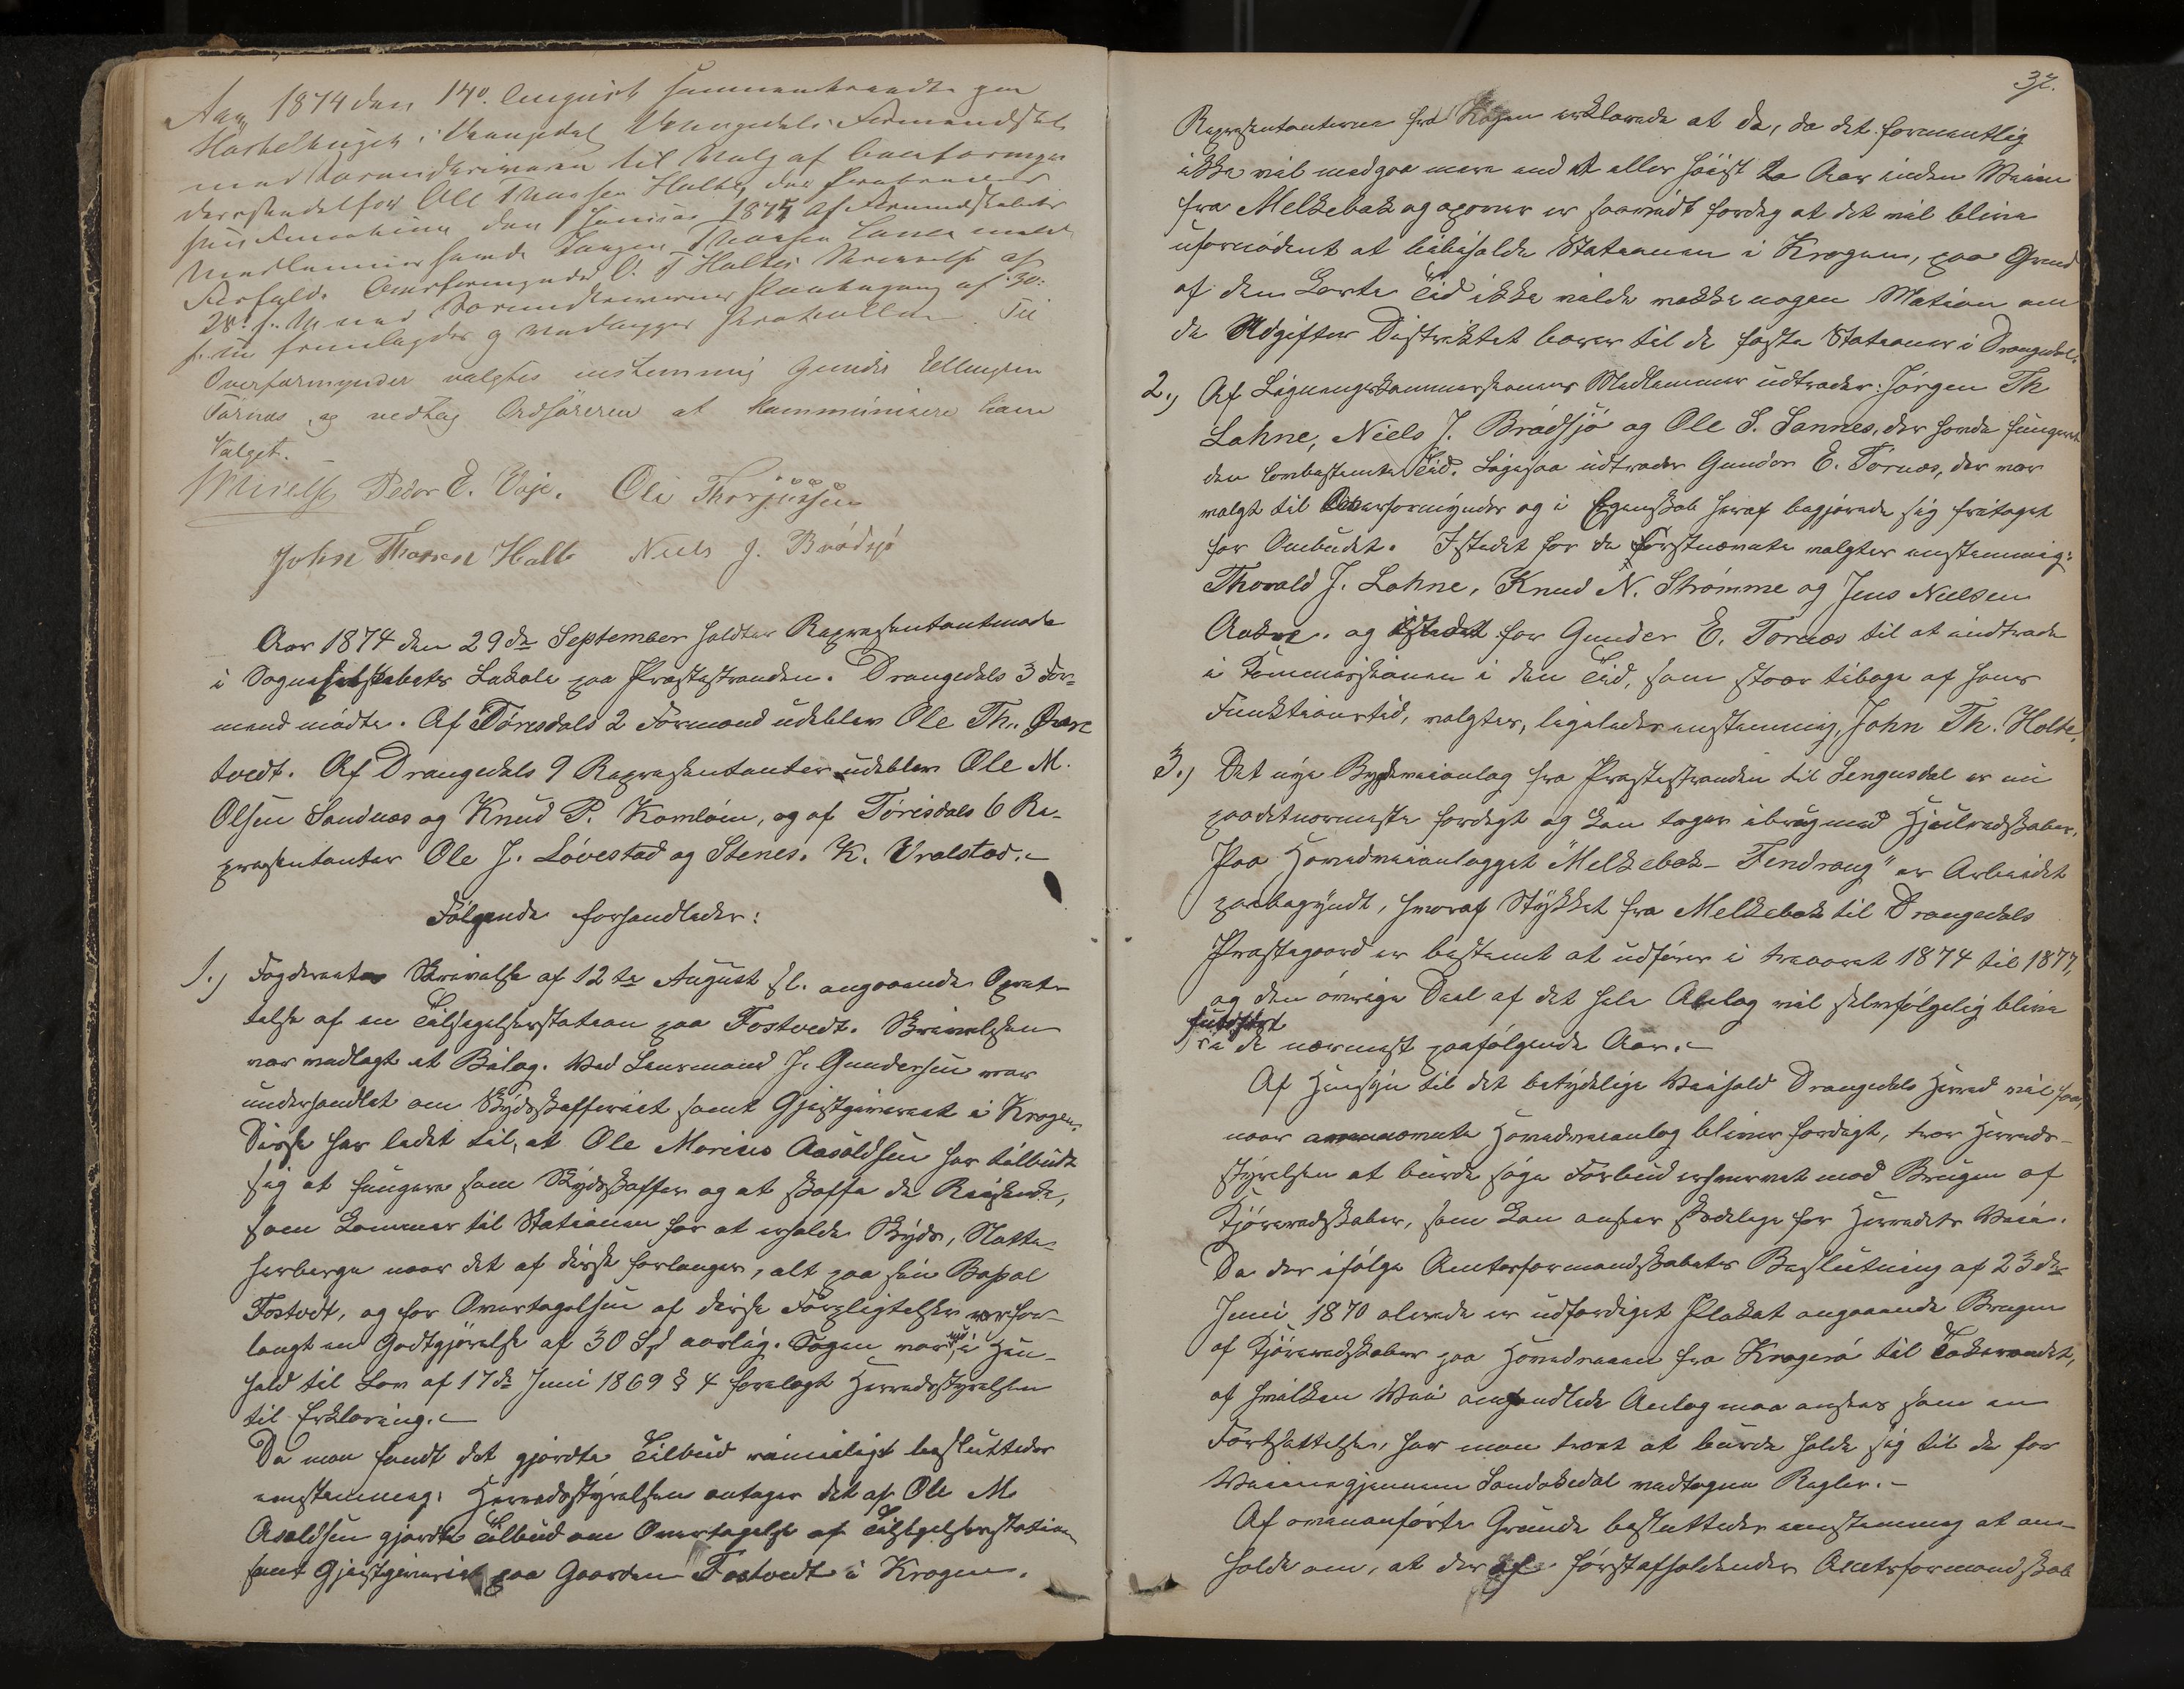 Aar 1874 den 14de August sammentraadte paa
i Drangedal Drangedals Formandskab
med til Valg af Overformynder
derstedet for Ole Thorsen Holte, der
den Januar 1875. Af Formandskabets
Medlemmer havde Jørgen Thorsen Lohne meldt
Forfald. Overformynder O. T Holtes Skrivelse af
28. f. M. med Sorenskriverens Paategning af 30.
s. M. fremlagdes og vedlægges Protokollen. Til
Overformynder valgtes enstemmig Gunder Ellingsen
Tørnes, og vedtog Ordføreren at kommunicere ham
Valget.
Peder E. Voje. Ole Thorjussen
John Thorsen Holte Niels J. Brødsjø
Aar 1874 den 29de September holdtes Repræsentantmøde
i Sogneselskabets Lokale paa Præstestranden. Drangedals 3 For-
mænd mødte. Af Tørisdals 2 Formænd udeblev Ole Th.
tvedt. Af Drangedals 9 Repræsentanter udeblev Ole M.
Olsen Sandnæs og Knud P. Komleien, og af Tørisdals 6 Re-
præsentanter Ole J. Løvestad og Stenes. K. Vralstad.-
Følgende forhandledes:
1.) Fogderiets Skrivelse af 12te August sl. angaaende Opret-
telse af en Tilsigelsesstation paa Tostvedt. Skrivelsen
var vedlagt et Bilag. Ved Lensmand J. Gundersen var
underhandlet om Skydsskafferiet samt Gjæstgiveriet i Krogen.
Disse har ledet til, at Ole Marius Aasoldsen har tilbudt
sig at fungere som Skydsskaffer og at skaffe de Reisende,
som kommer til Stationen for at erholde Skyds, Natte-
herberge naar det af disse forlanges, alt paa sin Bopæl
Tostvedt, og for Overtagelsen af disse Forpligtelser var for-
langt en Godtgjørelse af 30 Spd aarlig. Sagen var nu i Hen-
hold til Lov af 17de Juni 1869 § 4 forelagt Herredsstyrelsen
til Erklæring.-
Da man fandt det gjordte Tilbud rimeligt besluttedes
enstemmig: Herredsstyrelsen antager det af Ole M.
Asoldsen gjordte Tilbud om Overtagelse af Tilsigelsesstation
samt Gjæstgiveriet paa Gaarden Tostvedt i Krogen.
37.
Repræsentanterne fra Krogen erklærede at de, da det formentlig
ikke vil medgaa mere end et eller høist to Aar inden Veien
fra Melkebæk og opover er saavidt færdig at det vil blive
ufornødent at bibeholde Stationen i Krogen, paa Grund
af den korte Tid ikke vilde vække nogen Motion om
de Udgifter Distriktet bærer til de faste Stationer i Drangedal.
2.) Af Ligningskommissionens Medlemmer udtræder: Jørgen Th
Lohne, Niels J. Brødsjø og Ole S. Sannes, der havde fungeret
den lovbestemte Tid. Ligesaa udtræder Gunder E. Tørnæs, der var
valgt til Overformynder og i Egenskab heraf begjærede sig fritaget
for Ombudet. Istedet for de førstnævnte valgtes enstemmig:
Thorvald J. Lohne, Knud N. Strømme og Jens Nielsen
og istedet for Gunder E. Tornæs til at indtræde
i Kommissionen i den Tid, som staar tilbage af hans
Funktionstid, valgtes, ligeledes enstemmig, John Th. Holte.
3.) Det nye Bygdeveianlæg fra Præstestranden til Lengusdal er nu
paa det nærmeste færdigt og kan tages i brug med Hjulredskaber.
Paa Hovedveianlægget "Melkebæk-Tindrang" er Arbeidet
paabegyndt, hvoraf Stykket fra Melkebæk til Drangedals
Præstegaard er bestemt at udføres i treaaret 1874 til 1877,
og den øvrige Deel af det hele Anlæg vil selvfølgelig blive
fuldført
i de nærmest paafølgende Aar.-
Af Hensyn til det betydelige Veihold Drangedals Herred vil faa,
naar ovennævnte Hovedveianlæg bliver færdigt, tror Herreds-
styrelsen at burde søge Forbud erhvervet mod Brugen af
Kjøreredskaber, som kan ansees skadelige for Herredets Veie.
Da der ifølge Amtsformandskabets Beslutning af 23de
Juni 1870 allerede er udfærdiget Plakat angaaende Brugen
af Kjøreredskaber paa Hovedveien fra Kragerø til Tokevandet,
af hvilken Vei omhandlede Anlæg maa ansees som en
Fortsættelse, har man troet at burde holde sig til de for
Veiene gjennem Sandøkedal vedtagne Regler.-
Af ovenanførte Grunde besluttedes enstemmig at an-
holde om, at der af førstafholdendes Amtsformandskab